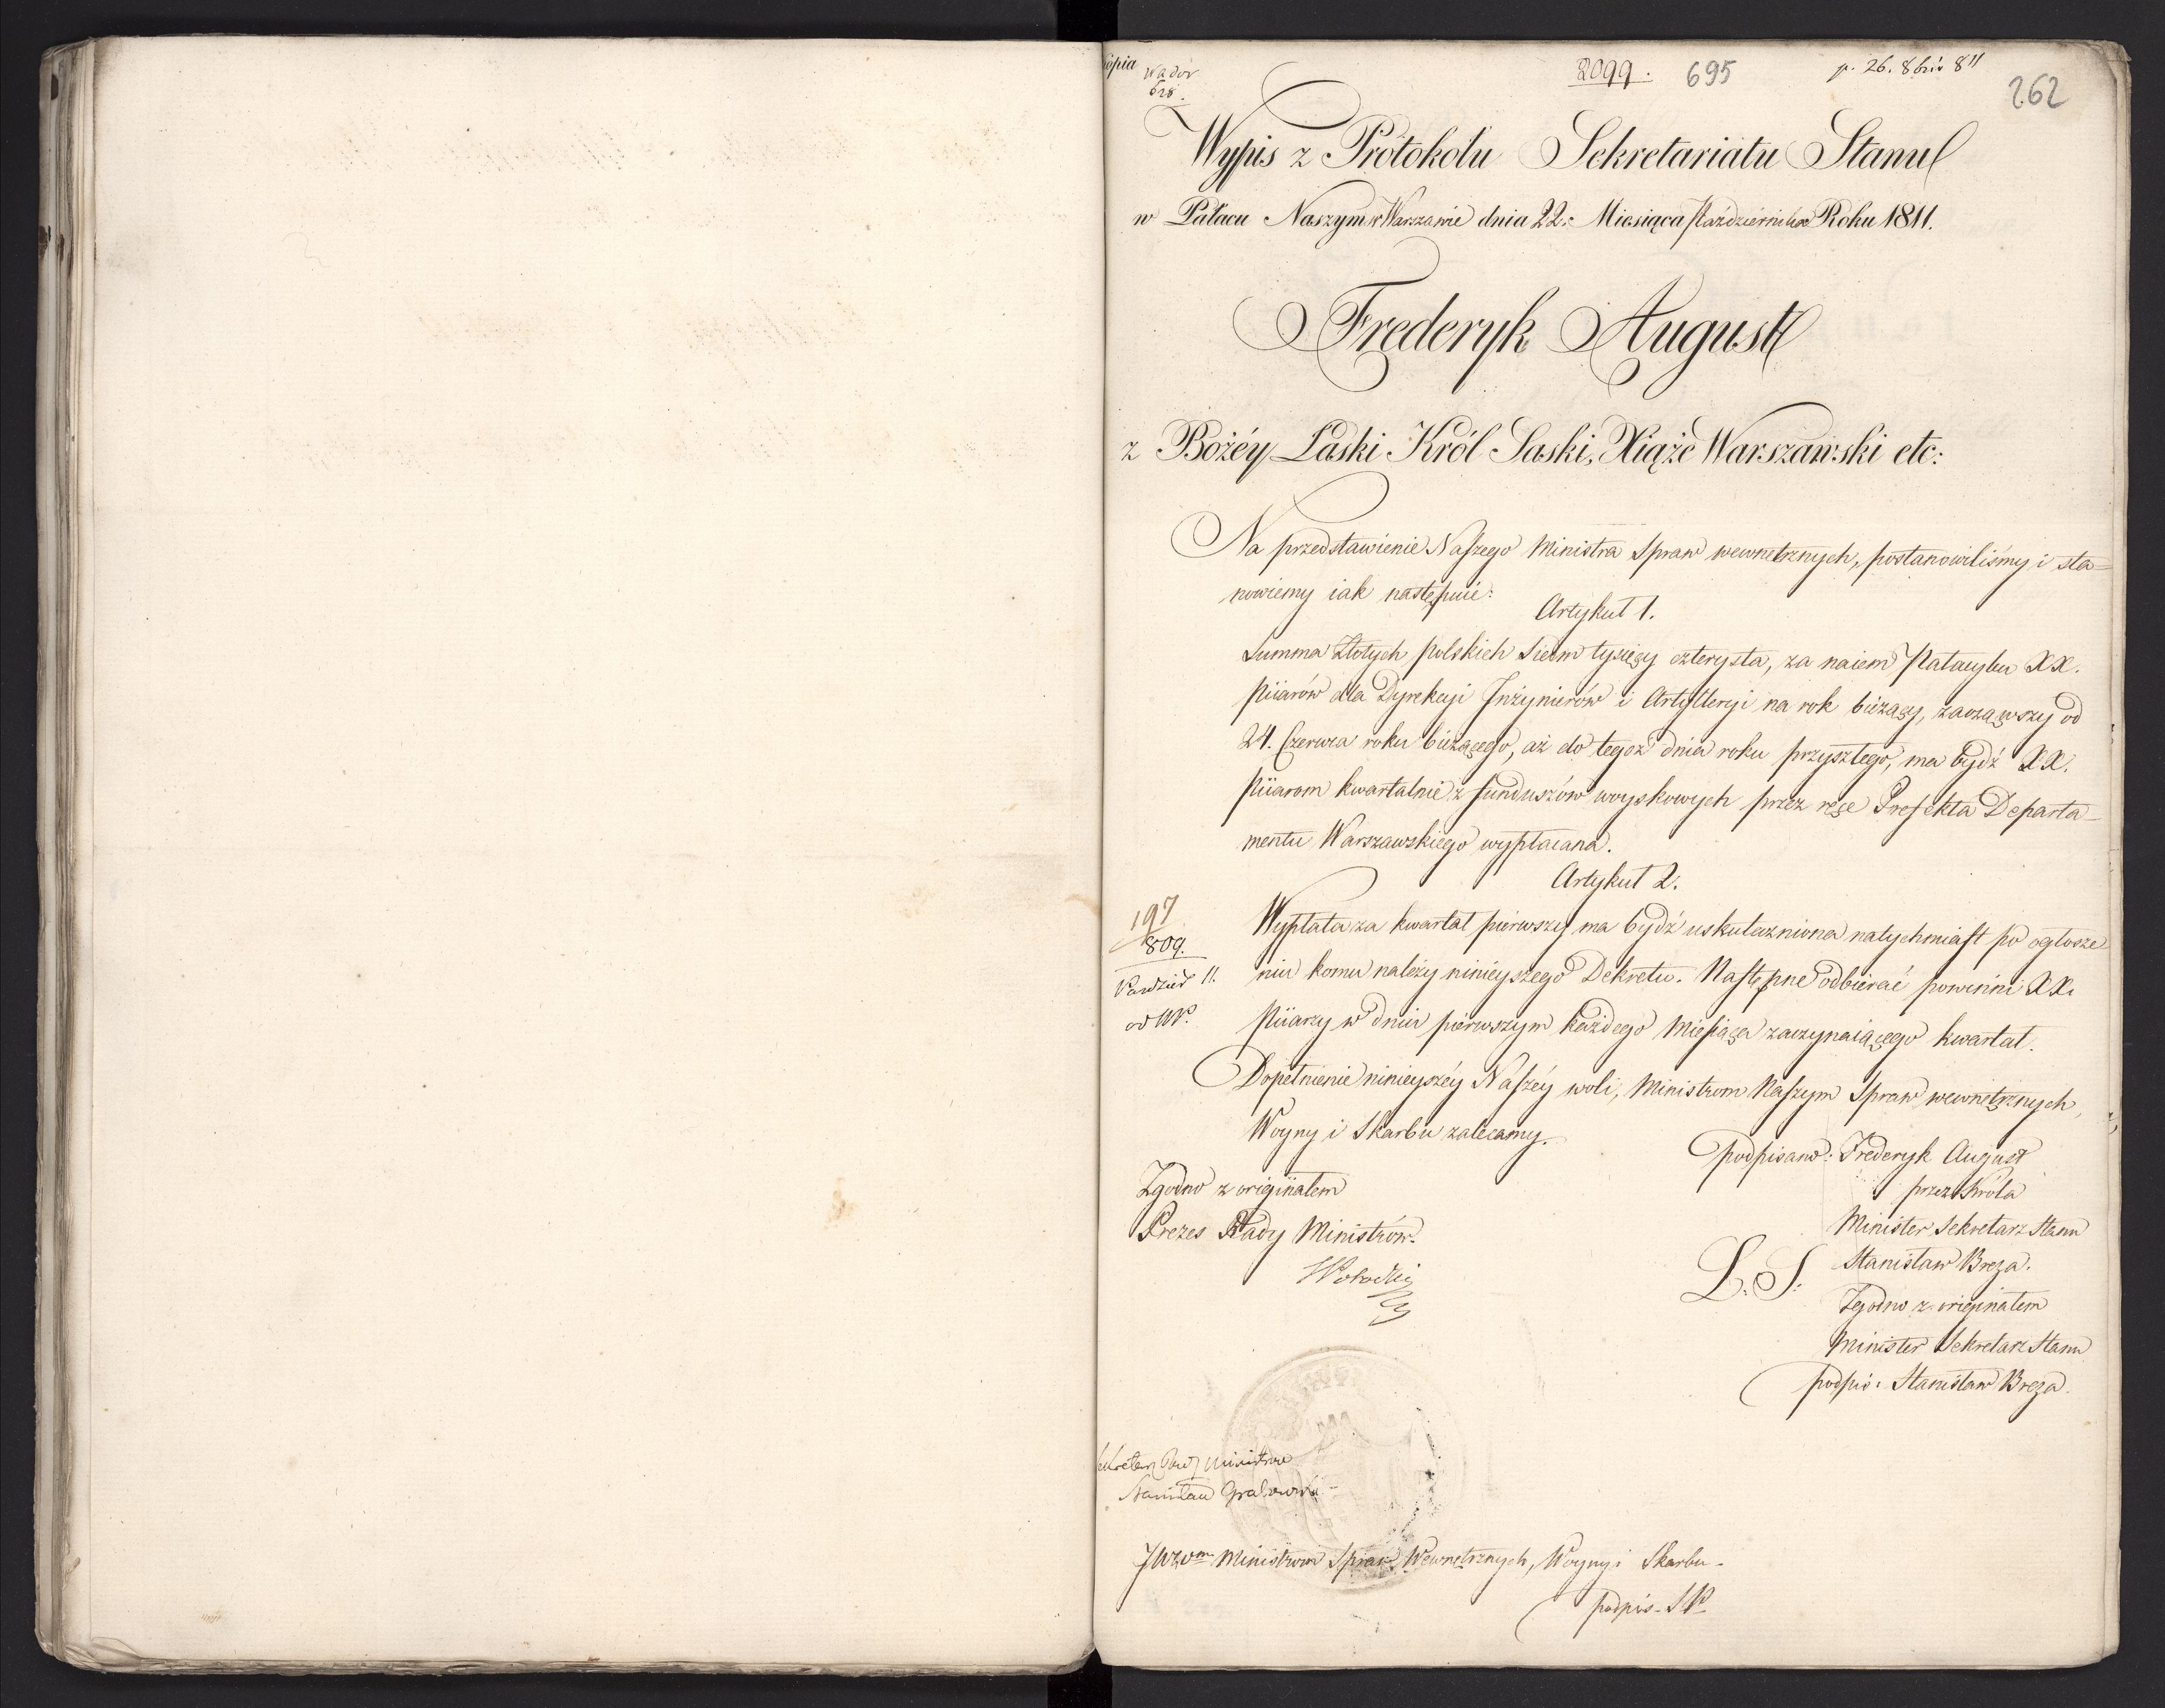 kopia
2099. 695 p. 26. 8briś 811
262
Wypis z Protokołu Sekretariatu Stanu
w Pałacu Naszym w Warszawie dnia 22: Miesiąca Października Roku 1811.
Frederyk August
z Bożéy Łaski Król Saski, Xiąże Warszawski etc:
Na przedstawienie Naszego Ministra Spraw wewnętrznych, postanowiliśmy i sta=
nowiemy iak następuie:
Artykuł 1.
Summa Złotych polskich siedm tysięcy czterysta, za naiem Pałacyku XX.
Piiarów dla Dyrekcyi Inżynierów i Artylleryi na rok bieżący, zacząwszy od
24. Czerwca roku bieżącego, aż do tegoż dnia roku przyszłego, ma bydź XX.
Piiarom kwartalnie z funduszów woyskowych przez ręce Prefekta Departa-
mentu Warszawskiego wypłacana.
Artykuł 2.
Wypłata za kwartał pierwszy ma bydź uskuteczniona natychmiast po ogłosze-
niu komu należy ninieyszego Dekretu. Następne odbierać powinni XX.
Piiarzy w dniu pierwszym każdego Miesiąca zaczynaiącego kwartał.
Dopełnienie ninieyszéy Naszéy woli, Ministrom Naszym Spraw wewnętrznych,
Woyny i Skarbu zalecamy.
197
809.
Paździer 11.
podpisano: Frederyk August
przez Króla
Minister Sekretarz Stanu
L. S. Stanisław Breza.
Zgodno z originałem
Minister Sekretarz Stanu
podpis: Stanisław Breza.
Zgodno z originałem
Prezes Rady Ministrów.
Sekretarz Rady Ministrów
Stanisław Grabowski
JWzom Ministrom Spraw Wewnętrznych, Woyny i Skarbu-
podpis-